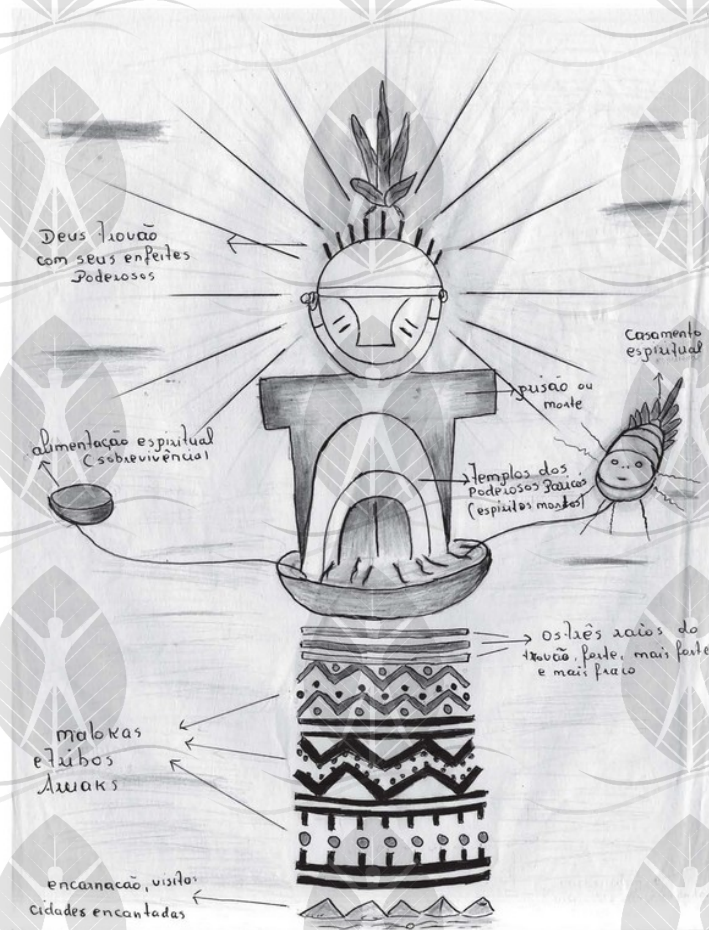 Deus trovão
com seus enfeites
Poderosos
Casamento
espiritual
prisão ou
morte
alimentação espiritual
(sobrevivência)
Templos dos
Poderosos
(espíritos mortos)
os três raios do
trovão, forte, mais forte
e mais fraco
malokas
e tribos
encarnação, visitas
cidades encantadas